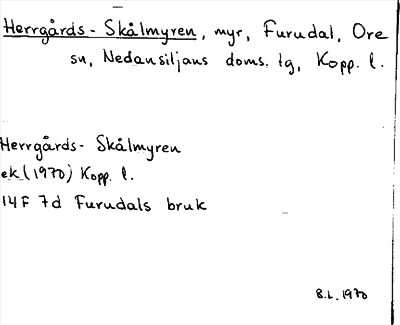 Herrgårds-Skålmyren, myr, Furudal, Ore
sn, Nedansiljans doms. tg, Kopp. l.
Herrgårds-Skålmyren
ek (1970) Kopp. l.
14F 7d Furudals bruk
B.L. 1970